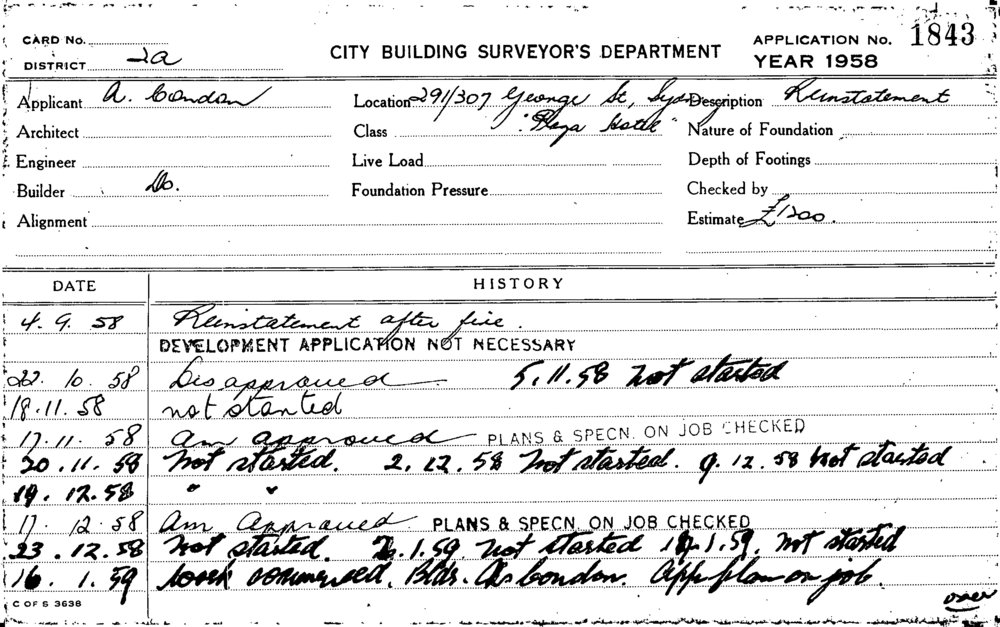 CARD No.
DISTRICT 2a
CITY BUILDING SURVEYOR'S DEPARTMENT
APPLICATION No. 1843
YEAR 1958
Applicant A. Condon
Location 291/307 George St, Sydney
Description Reinstatement
Architect
Class "Plaza Hotel"
Nature of Foundation
Engineer
Live Load
Depth of Footings
Builder Do.
Foundation Pressure
Checked by
Alignment
Estimate £1200.
DATE HISTORY
4. 9. 58 Reinstatement after fire.
DEVELOPMENT APPLICATION NOT NECESSARY
22. 10. 58 Disapproved 5.11.58 Not started
18.11.58 not started
17.11.58 Am approved PLANS & SPECN. ON JOB CHECKED
20.11.58 Not started. 2.12.58 Not started. 9.12.58 Not started
19.12.58 " "
17.12.58 Am Approved PLANS & SPECN. ON JOB CHECKED
23.12.58 Not started. 1.59. Not started 1.59. Not started
16. 1. 59 Work commenced. Bldr. Condon. App plan on job.
over
C OF S 3638